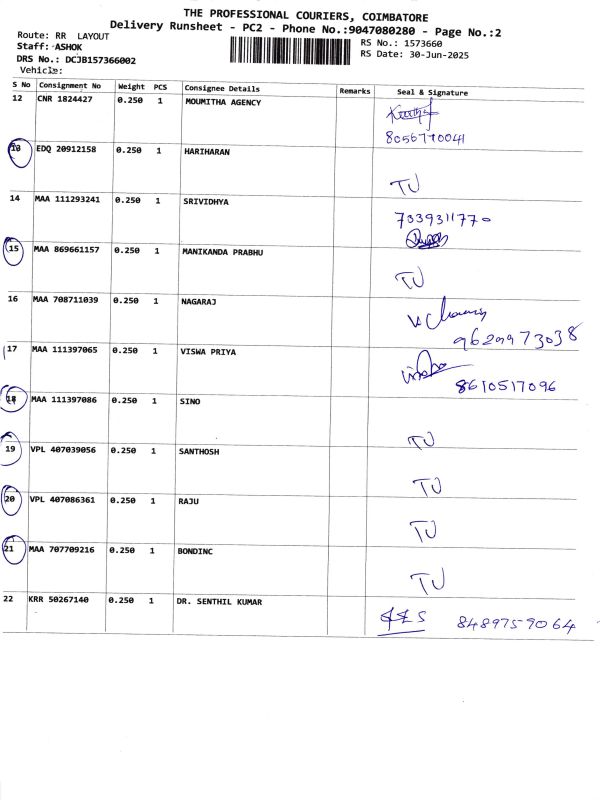 THE PROFESSIONAL COURIERS, COIMBATORE
Delivery Runsheet - PC2 - Phone No.:9047080280 - Page No.:2
Route: RR LAYOUT
RS No.: 1573660
Staff: ASHOK
RS Date: 30-Jun-2025
DRS No.: DCJB157366002
Vehicle:
S No Consignment No Weight PCS Consignee Details Remarks Seal & Signature
12 CNR 1824427 0.250 1 MOUMITHA AGENCY
8056770041
13 EDQ 20912158 0.250 1 HARIHARAN
TJ
14 MAA 111293241 0.250 1 SRIVIDHYA
7039311770
15 MAA 869661157 0.250 1 MANIKANDA PRABHU
TJ
16 MAA 708711039 0.250 1 NAGARAJ
9629973038
17 MAA 111397065 0.250 1 VISWA PRIYA
8610517096
18 MAA 111397086 0.250 1 SINO
TJ
19 VPL 407039056 0.250 1 SANTHOSH
TJ
20 VPL 407086361 0.250 1 RAJU
TJ
21 MAA 707709216 0.250 1 BONDINC
TJ
22 KRR 50267140 0.250 1 DR. SENTHIL KUMAR
8489759064